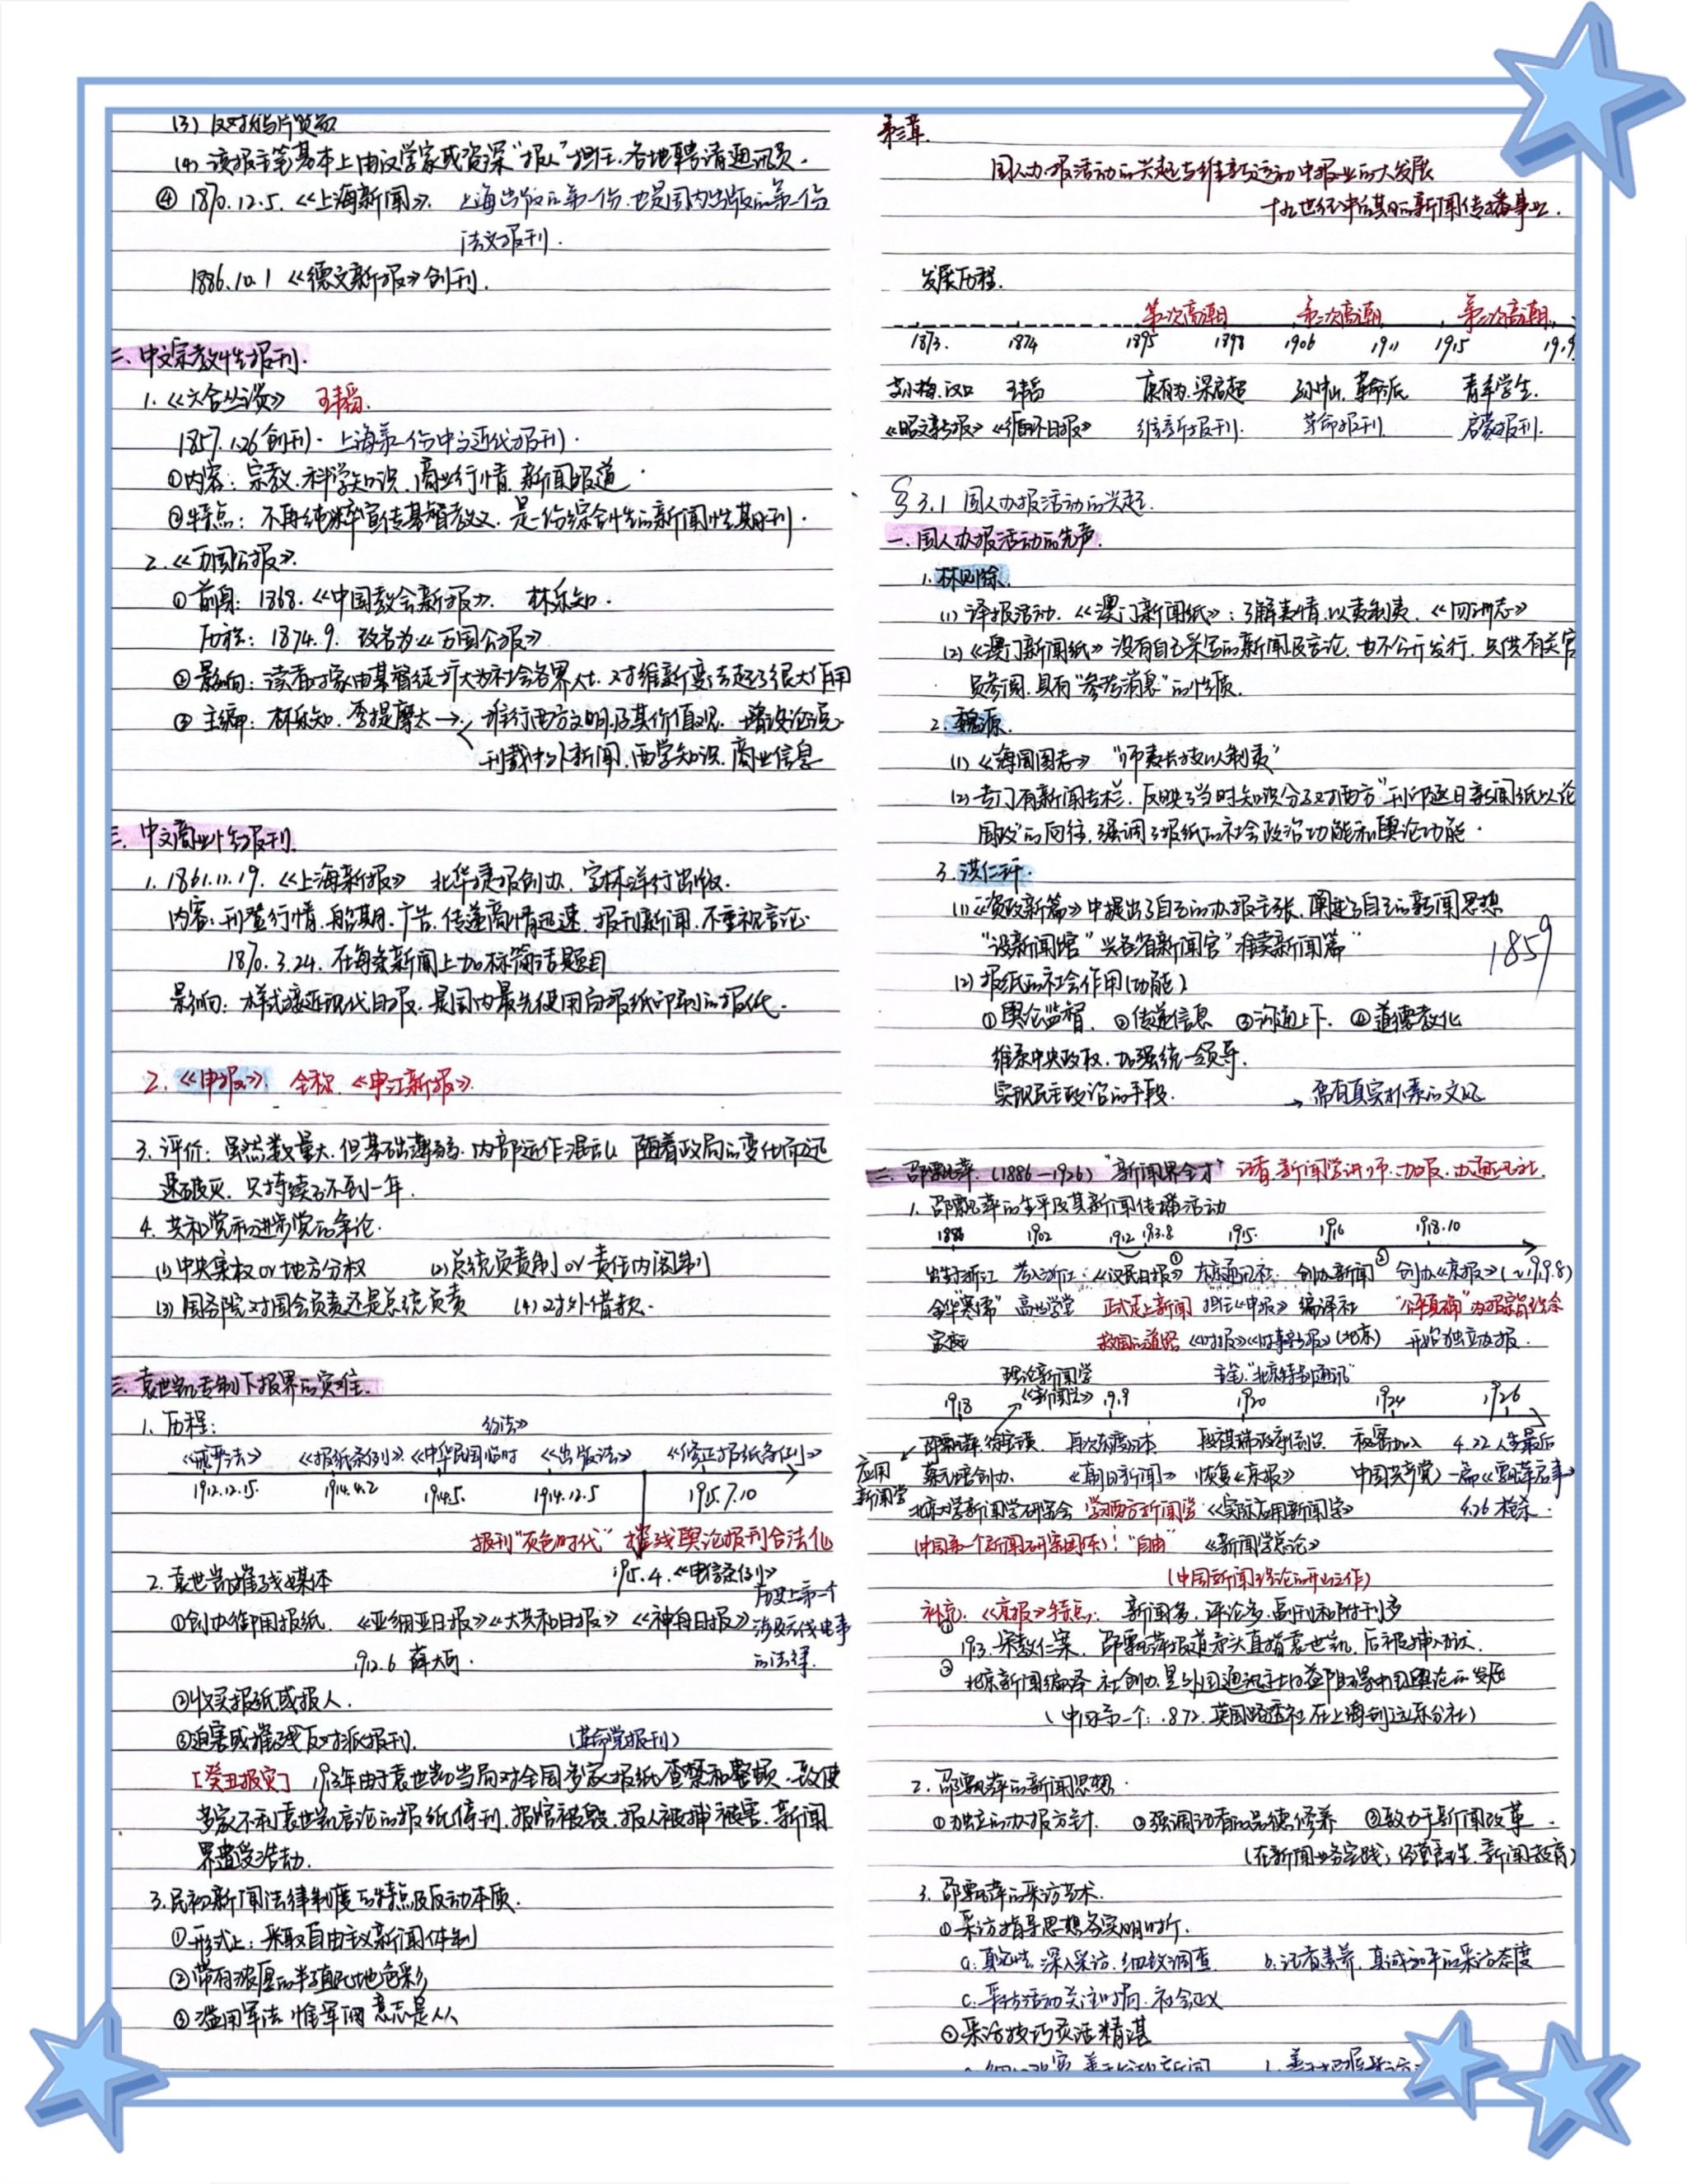 (3) 反对鸦片贸易
(4) 该报主笔基本上由汉学家或资深"报人"担任,各地聘请通讯员.
④ 1870.12.5.《上海新闻》. 上海出版的第一份,也是国内出版的第一份
法文报刊.
1886.10.1《德文新报》创刊.
二、中文宗教性报刊.
1.《六合丛谈》 王韬.
1857.1.26创刊. 上海第一份中文近代报刊.
①内容: 宗教、科学知识、商业行情、新闻报道.
②特点: 不再纯粹宣传基督教义,是一份综合性的新闻性期刊.
2.《万国公报》.
① 前身: 1868.《中国教会新报》. 林乐知.
历程: 1874.9. 改名为《万国公报》
② 影响: 读者对象由基督徒扩大为社会各界人士,对维新变法起了很大作用
③ 主编: 林乐知、李提摩太→ 推行西方文明及其价值观、 论说
刊载中外新闻、西学知识、商业信息
三、中文商业性报刊.
1. 1861.11.19.《上海新报》 北华捷报创办,字林洋行出版.
内容: 刊登行情、船期、广告,传递商情迅速,报刊新闻,不重视言论
1870.3.24. 在每条新闻上加标简洁题目
影响: 样式接近现代日报,是国内最先使用白报纸印刷的报纸.
2.《申报》. 全称《申江新报》.
3. 评价: 虽然数量大,但基础薄弱,内部运作混乱 随着政局的变化而迅
速破灭,只持续了不到一年.
4. 共和党和进步党的争论.
(1) 中央集权or地方分权 (2)总统负责制or责任内阁制
(3) 国务院对国会负责还是总统负责 (4)对外借款.
三、袁世凯专制下报界的灾难.
1. 历程: 约法》
《戒严法》 《报纸条例》《中华民国临时 《出版法》 《修正报纸条例》
1912.12.15. 1914.4.2 1914.5. 1914.12.5 1915.7.10
报刊"灰色时代" 摧残舆论报刊合法化
2. 袁世凯摧残媒体 1915.4.《电信条例》
历史上第一个
①创办御用报纸. 《亚细亚日报》《大共和日报》《神舟日报》 涉及无线电事
1912.6 薛大可. 的法律.
②收买报纸或报人.
③迫害或摧残反对派报刊. (革命党报刊)
[癸丑报灾] 1913年由于袁世凯当局对全国多家报纸查禁和整顿,致使
多家不利袁世凯言论的报纸停刊,报馆被毁,报人被捕被害,新闻
界遭受浩劫.
3.民初新闻法律制度的特点及反动本质.
①形式上: 采取自由主义新闻体制
②带有浓厚的半殖民地色彩
③滥用军法 惟军阀意志是从
第三章.
国人办报活动的兴起与维新运动中报业的大发展
十九世纪中后期的新闻传播事业.
发展历程.
第一次高潮 第二次高潮 第三次高潮.
1873. 1874 1895 1898 1906 1911 1915 1919
艾小梅.汉口 王韬 康有为.梁启超 孙中山.革命派 青年学生.
《昭文新报》《循环日报》 维新报刊. 革命报刊. 启蒙报刊.
§3.1 国人办报活动的兴起.
一、国人办报活动的先声.
1. 林则徐.
(1) 译报活动.《澳门新闻纸》: 了解夷情,以夷制夷.《四洲志》
(2)《澳门新闻纸》没有自己采写的新闻及言论,也不公开发行,只供有关官
员参阅,具有"参考消息"的性质.
2. 魏源.
(1)《海国图志》 "师夷长技以制夷"
(2) 专门有新闻专栏,反映了当时知识分子对西方"刊印逐日新闻纸以论
国政"的向往,强调了报纸的社会政治功能和舆论功能.
3. 洪仁玕.
(1)《资政新篇》中提出了自己的办报主张,阐述了自己的新闻思想
"设新闻馆" "兴各省新闻官" "准卖新闻篇"
1859
(2) 报纸的社会作用(功能)
①舆论监督. ②传递信息 ③沟通上下. ④道德教化
维系中央政权,加强统一领导.
实现民主政治的手段. → 需有真实朴素的文风
二. 邵飘萍. (1886—1926) "新闻界全才" 记者.新闻学讲师.办报.办通讯社.
1. 邵飘萍的生平及其新闻传播活动
1886 1902 1912 1913.8 1915. 1916 1918.10
出生于浙江 考入浙江 《汉民日报》① 东京通讯社 创办新闻② 创办《京报》(~1919.8)
金华"寒儒" 高等学堂 正式走上新闻 担任《申报》 编译社 "公平真确"为报
家庭 救国的道路 《时报》《时事新报》(北京) 开始独立办报.
理论新闻学 专栏"北京特别通讯"
1918 《新闻学》 1919 1920 1924 1926
应用 邵飘萍.徐宝璜. 再次东渡日本 段祺瑞政府倒台 秘密加入 4.22人生最后
新闻学 蔡元培创办. 《朝日新闻》 恢复《京报》 中国共产党) 一篇《飘萍启事》
北京大学新闻学研究会 学习西方新闻学 《实际应用新闻学》 4.26枪杀.
(中国第一个新闻研究团体) "自由" 《新闻学总论》
(中国新闻理论的开山之作)
补充.《京报》特点: 新闻多、评论多、副刊和附刊多
① 1913.宋教仁案. 邵飘萍报道矛头直指袁世凯,后被捕入狱.
② 北京新闻编译社创办 是外国通讯社日益阻碍中国舆论的发展
(中国第一个: 1872. 英国路透社在上海创远东分社)
2. 邵飘萍的新闻思想.
①独立的办报方针. ②强调记者的品德修养 ③致力于新闻改革.
(在新闻业务实践、经营管理、新闻教育)
3. 邵飘萍的采访艺术.
①采访指导思想务实明晰.
a.真实性,深入采访,细致调查. b.记者素养,真诚和平的采访态度
c.采访活动关注时局.社会正义
②采访技巧灵活精湛